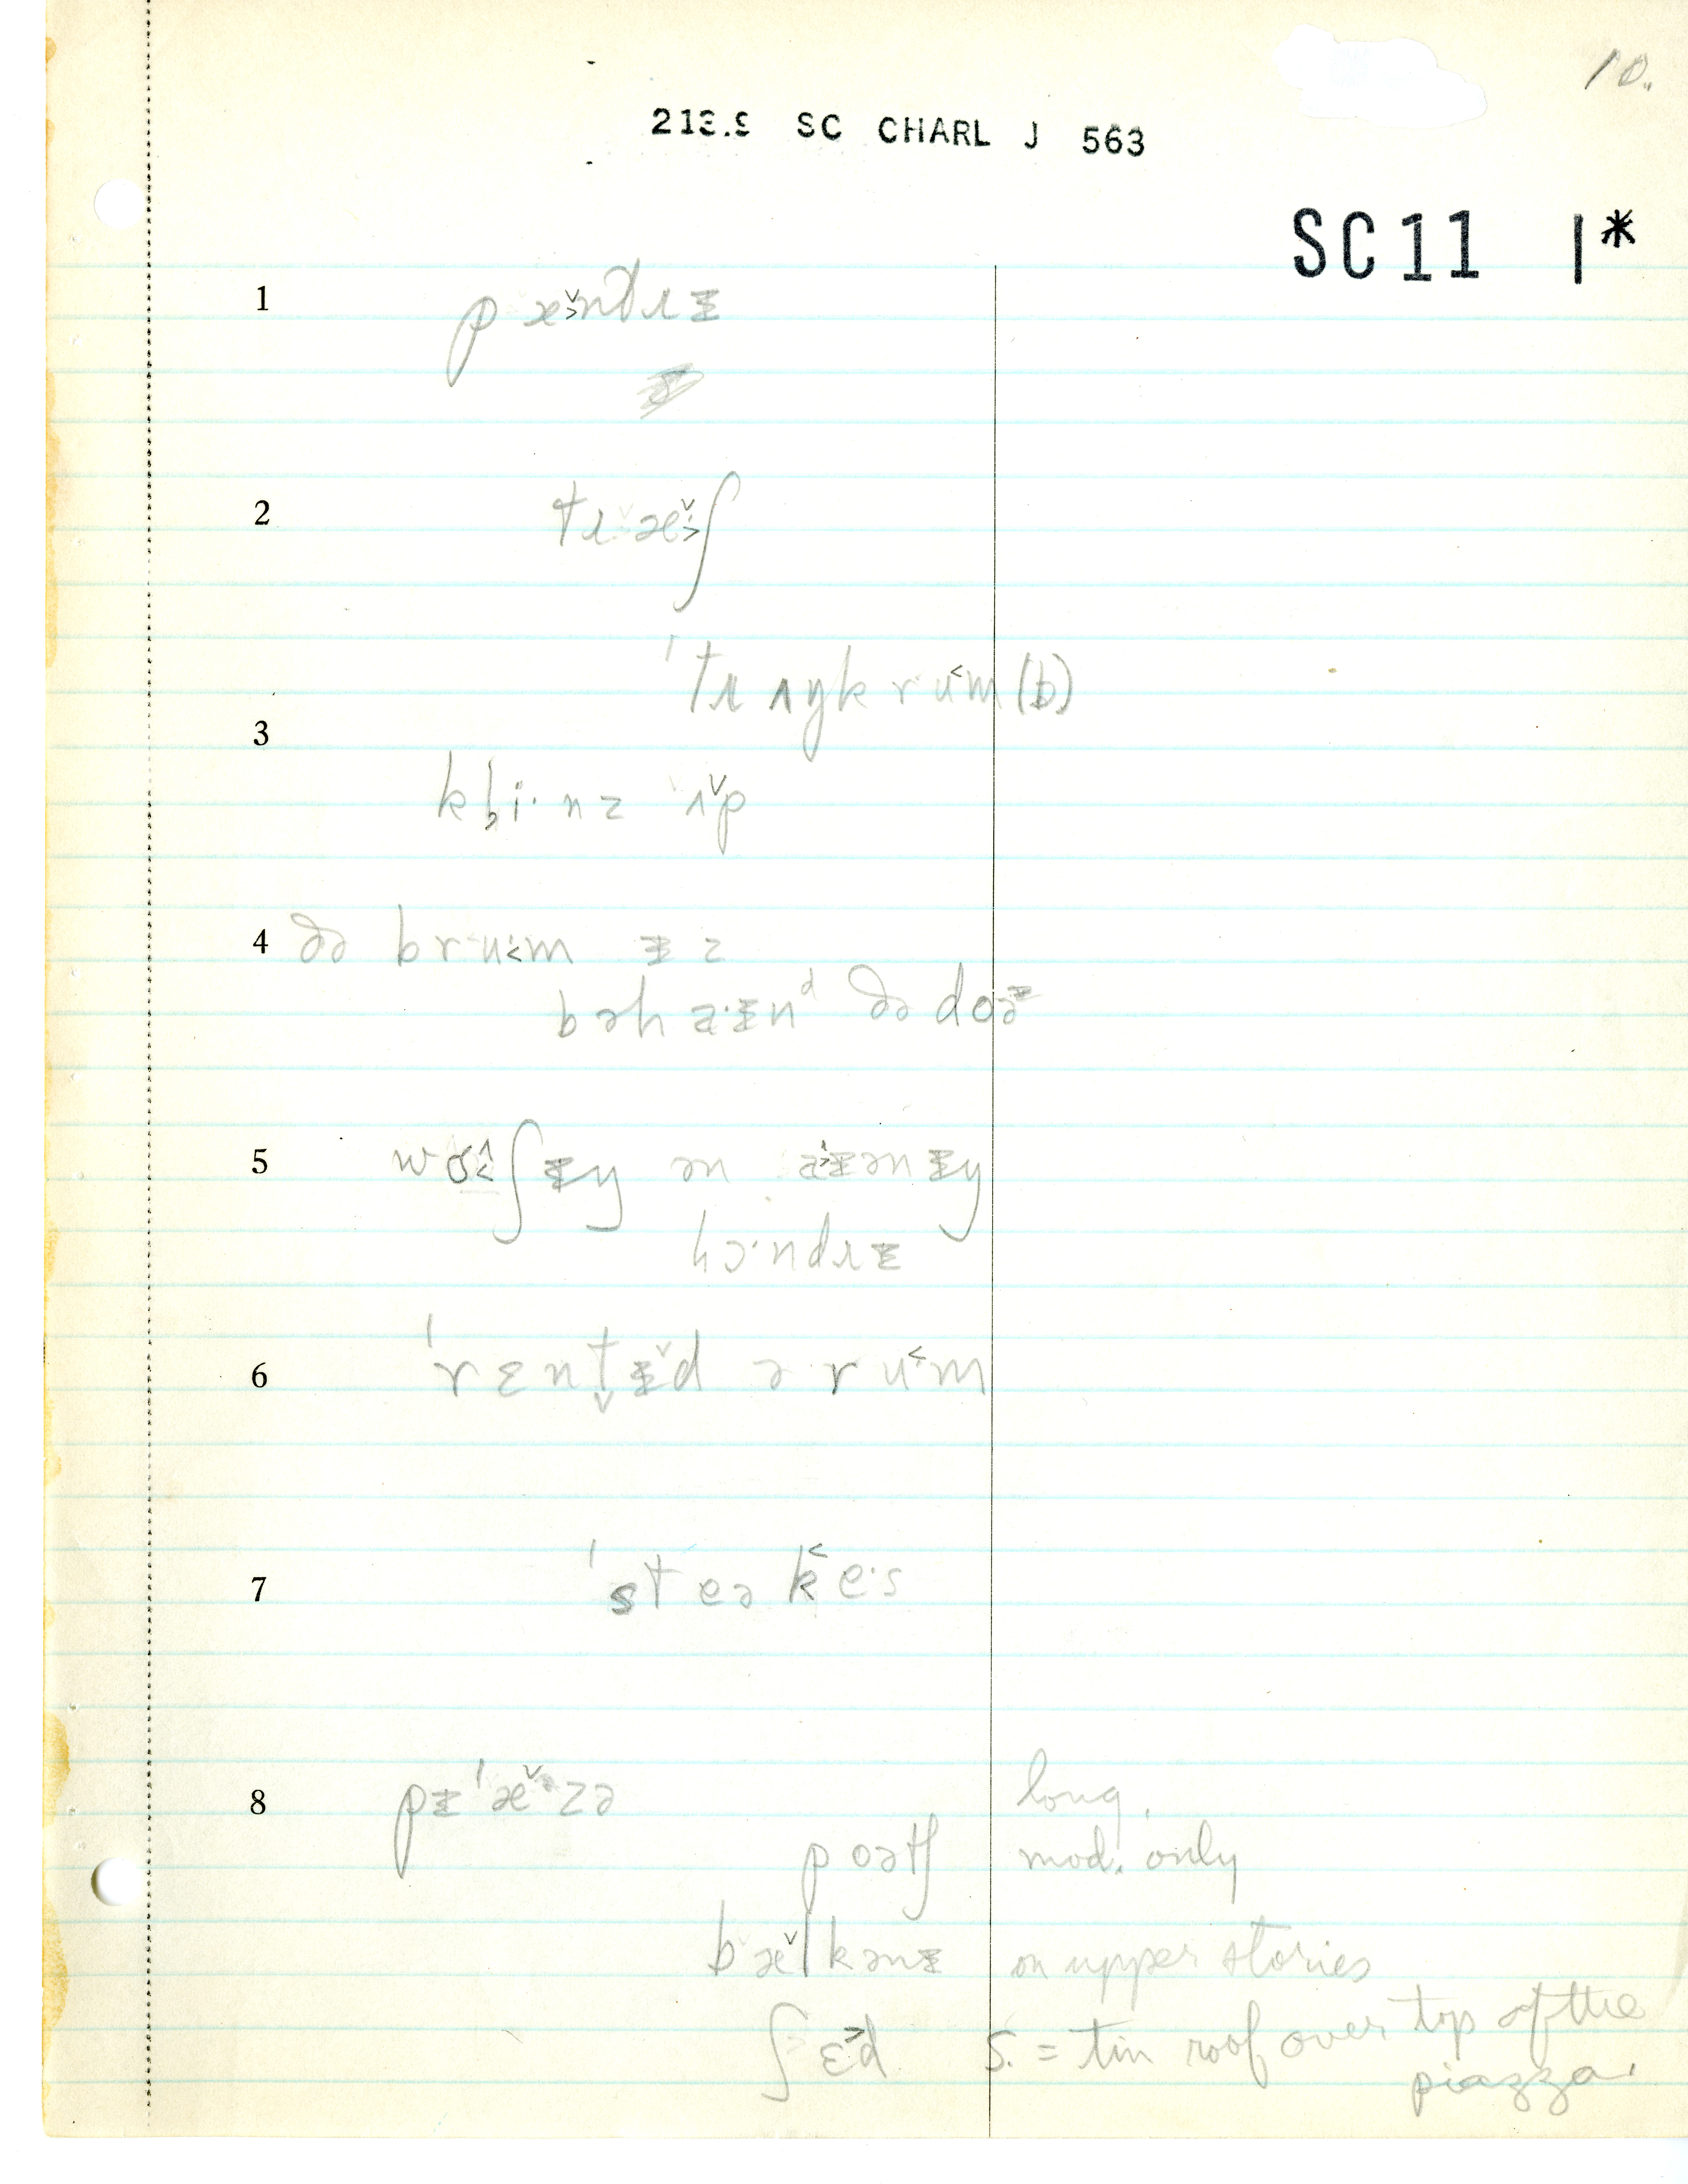 10.
213.9 SC CHARL J 563
SC11 1*
1 pæ̌ndɹɪ̵
2 tɹæ̌ʃ
ˈtɹʌŋkru˂m(b)
3 kl̥i·nz ʌ̌p
4 ðə bru˂·m ɪ̵z
bəhaɪ̵nᵈ ðə doə
5 wɒ˂ʃɪ̵ŋ ən aɪ̵ənɪ̵ŋ
lɔ·ndɹɪ̵
6 ˈrɛnt̬ɪ̵̌d ə ru˂m
7 ˈsteək˂e·s
8 pɪ̵ˈæ̌zə long.
poətʃ mod. only
bæ̌lkənɪ̵ on upper stories
ʃɛ˃d S. = tin roof over top of the
piazza.